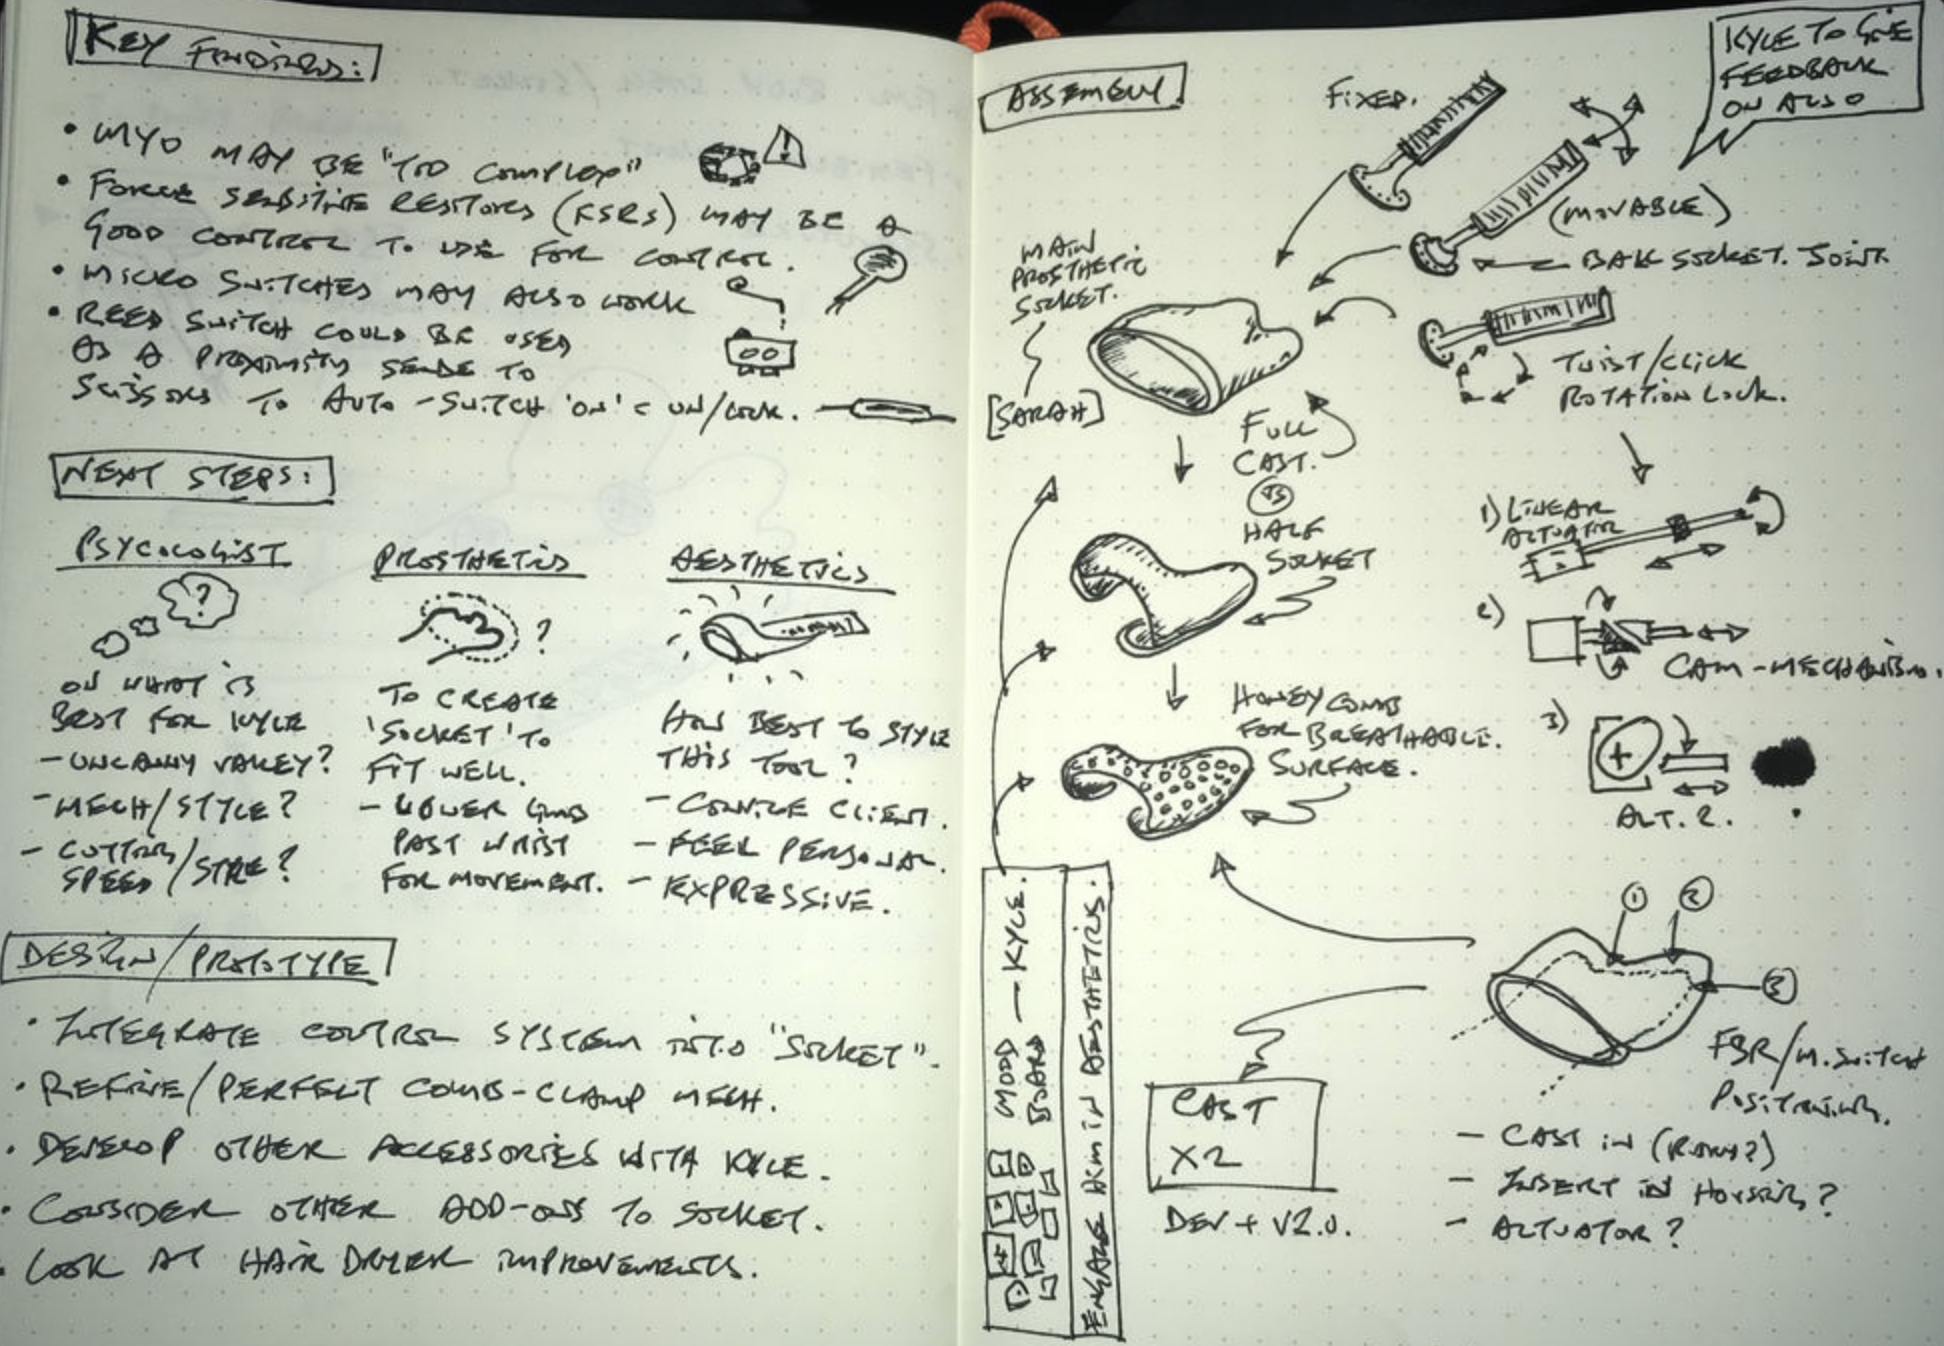 KEY FINDINGS:
• MYO MAY BE "TOO COMPLEX"
• FORCE SENSITIVE RESISTORS (FSRS) MAY BE A
GOOD CONTROL TO USE FOR CONTROL.
• MICRO SWITCHES MAY ALSO WORK
• REED SWITCH COULD BE USED
AS A PROXIMITY SENSE TO
SCISSORS TO AUTO-SWITCH 'ON' UN/LOCK.
NEXT STEPS:
PSYCOLOGIST
?
ON WHAT IS
BEST FOR KYLE
- UNCANNY VALLEY?
- MECH/STYLE?
- CUTTING
SPEED/STYLE?
PROSTHETICS
?
TO CREATE
'SOCKET' TO
FIT WELL.
- LOWER LIMB
PAST WRIST
FOR MOVEMENT.
AESTHETICS
HOW BEST TO STYLE
THIS TOOL?
- CLIENT.
- FEEL PERSONAL.
- EXPRESSIVE.
DESIGN/PROTOTYPE
• INTEGRATE CONTROL SYSTEM INTO "SOCKET".
• REFINE/PERFECT COMB-CLAMP MECH.
• DEVELOP OTHER ACCESSORIES WITH KYLE.
• CONSIDER OTHER ADD-ONS TO SOCKET.
• LOOK AT HAIR DRYER IMPROVEMENTS.
ASSEMBLY
FIXED.
KYLE TO GIVE
FEEDBACK
ON ALSO
(MOVABLE)
BALL SOCKET JOINT.
MAIN
PROSTHETIC
SOCKET.
[SARAH]
TWIST/CLICK
ROTATION LOCK.
FULL
CAST.
VS
HALF
SOCKET
1) LINEAR
ACTUATOR
2)
CAM-MECHANISM.
3)
ALT. 2.
HONEYCOMB
FOR BREATHABLE
SURFACE.
MOOD
BOARD
— KYLE.
ENGAGE AESTHETICS.
1
2
3
FSR/M.SWITCH
POSITIONING.
- CAST IN
- INSERT IN HOUSING?
- ACTUATOR?
CAST
X2
DEV + V2.0.